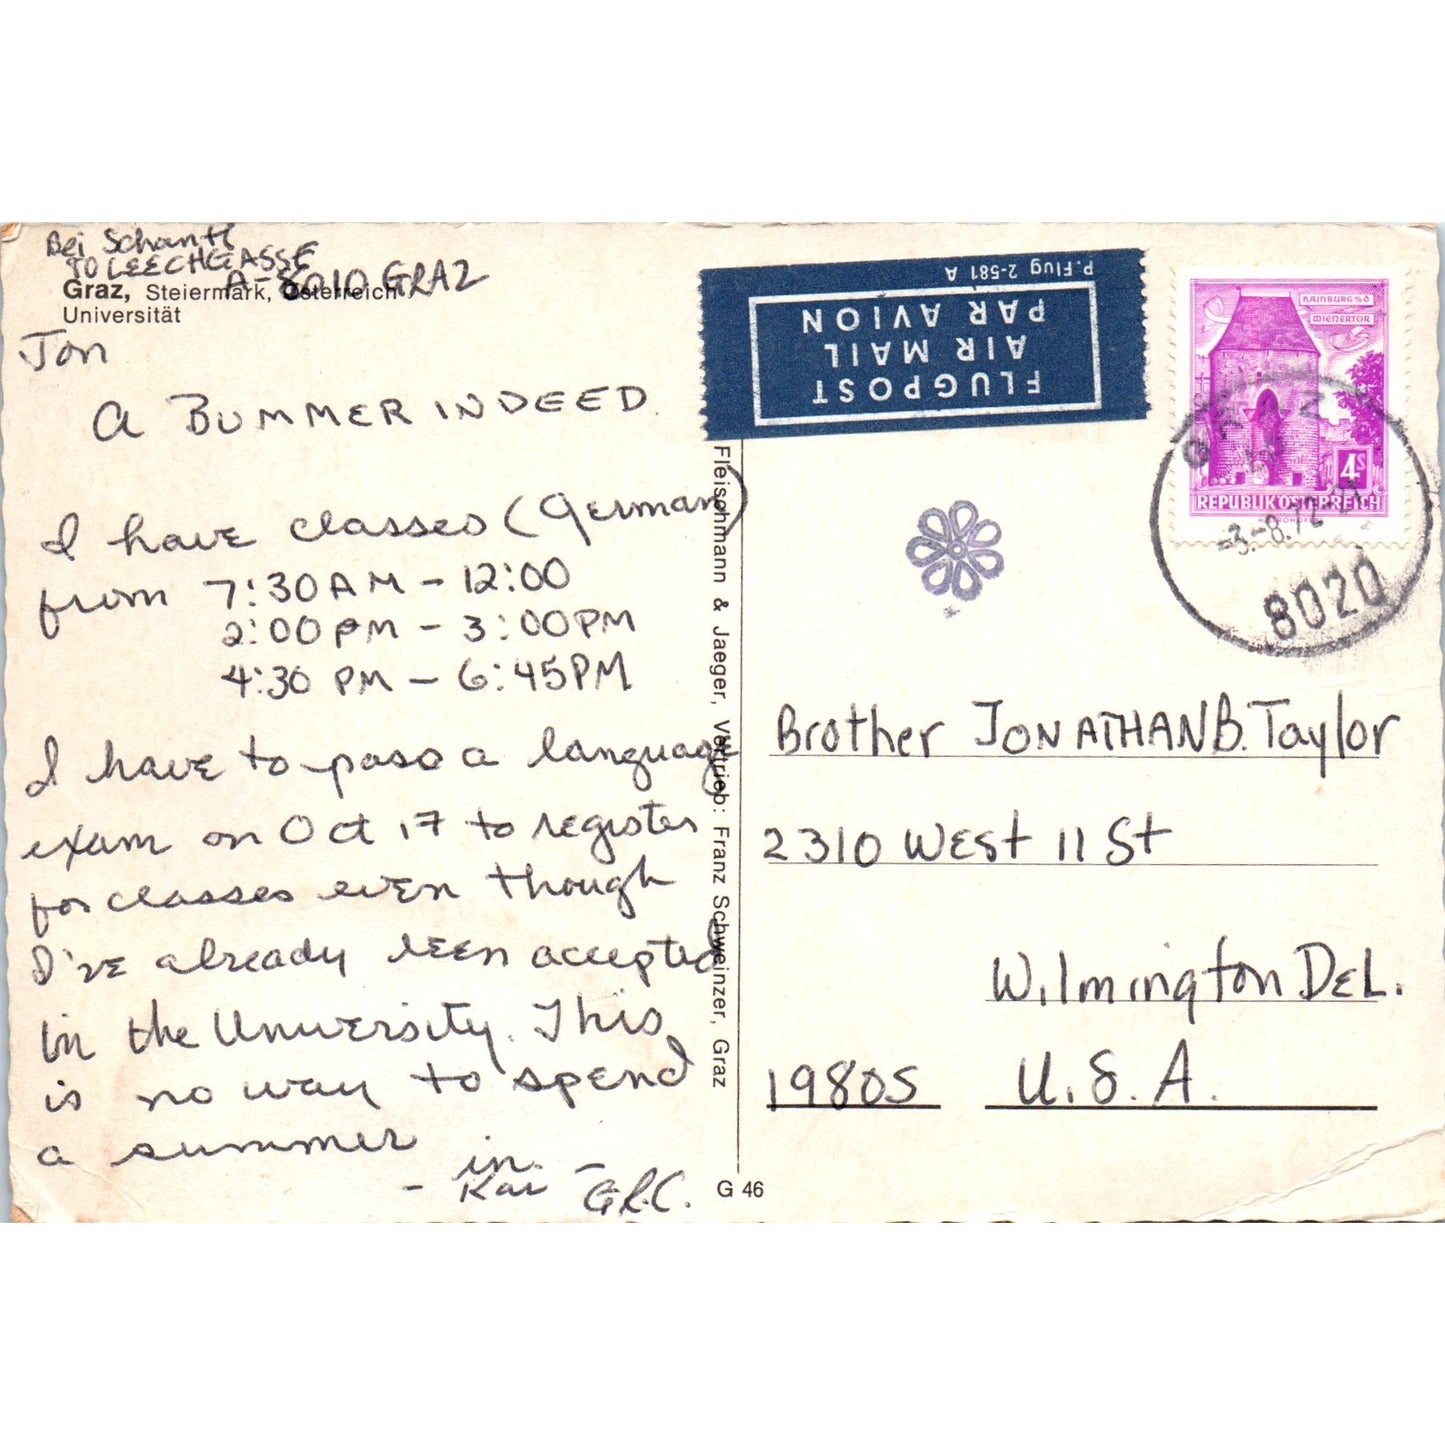 Bei Schantl
90 LEECHGASSE
A-8010 GRAZ
Graz, Steiermark, Österreich
Universität
Jon
A BUMMER INDEED.
I have classes (German)
from 7:30 AM - 12:00
2:00 PM - 3:00 PM
4:30 PM - 6:45 PM
I have to pass a language
exam on Oct 17 to register
for classes even though
I've already been accepted
in the University. This
is no way to spend
a summer in.
-
Fleischmann & Jaeger, Vertrieb: Franz Schweinzer, Graz
G 46
P.Flug 2-581 A
FLUGPOST
AIR MAIL
PAR AVION
HAINBURG a/d
WIENERTOR
4S
REPUBLIK ÖSTERREICH
GRAZ
-3.-8.72
8020
Brother JONATHAN B. Taylor
2310 West 11 St
Wilmington DEL.
19805 U.S.A.